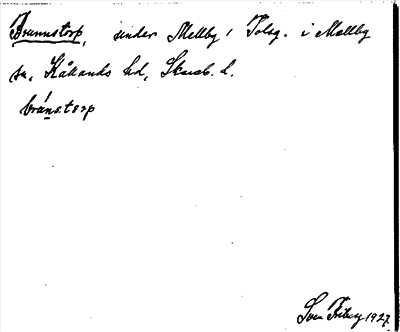 Brunnstorp, under Mellby, Tolsg. i Mellby
sn, Kållands hd, Skarab. l.
brúns.torp
Sven Friberg 1927.